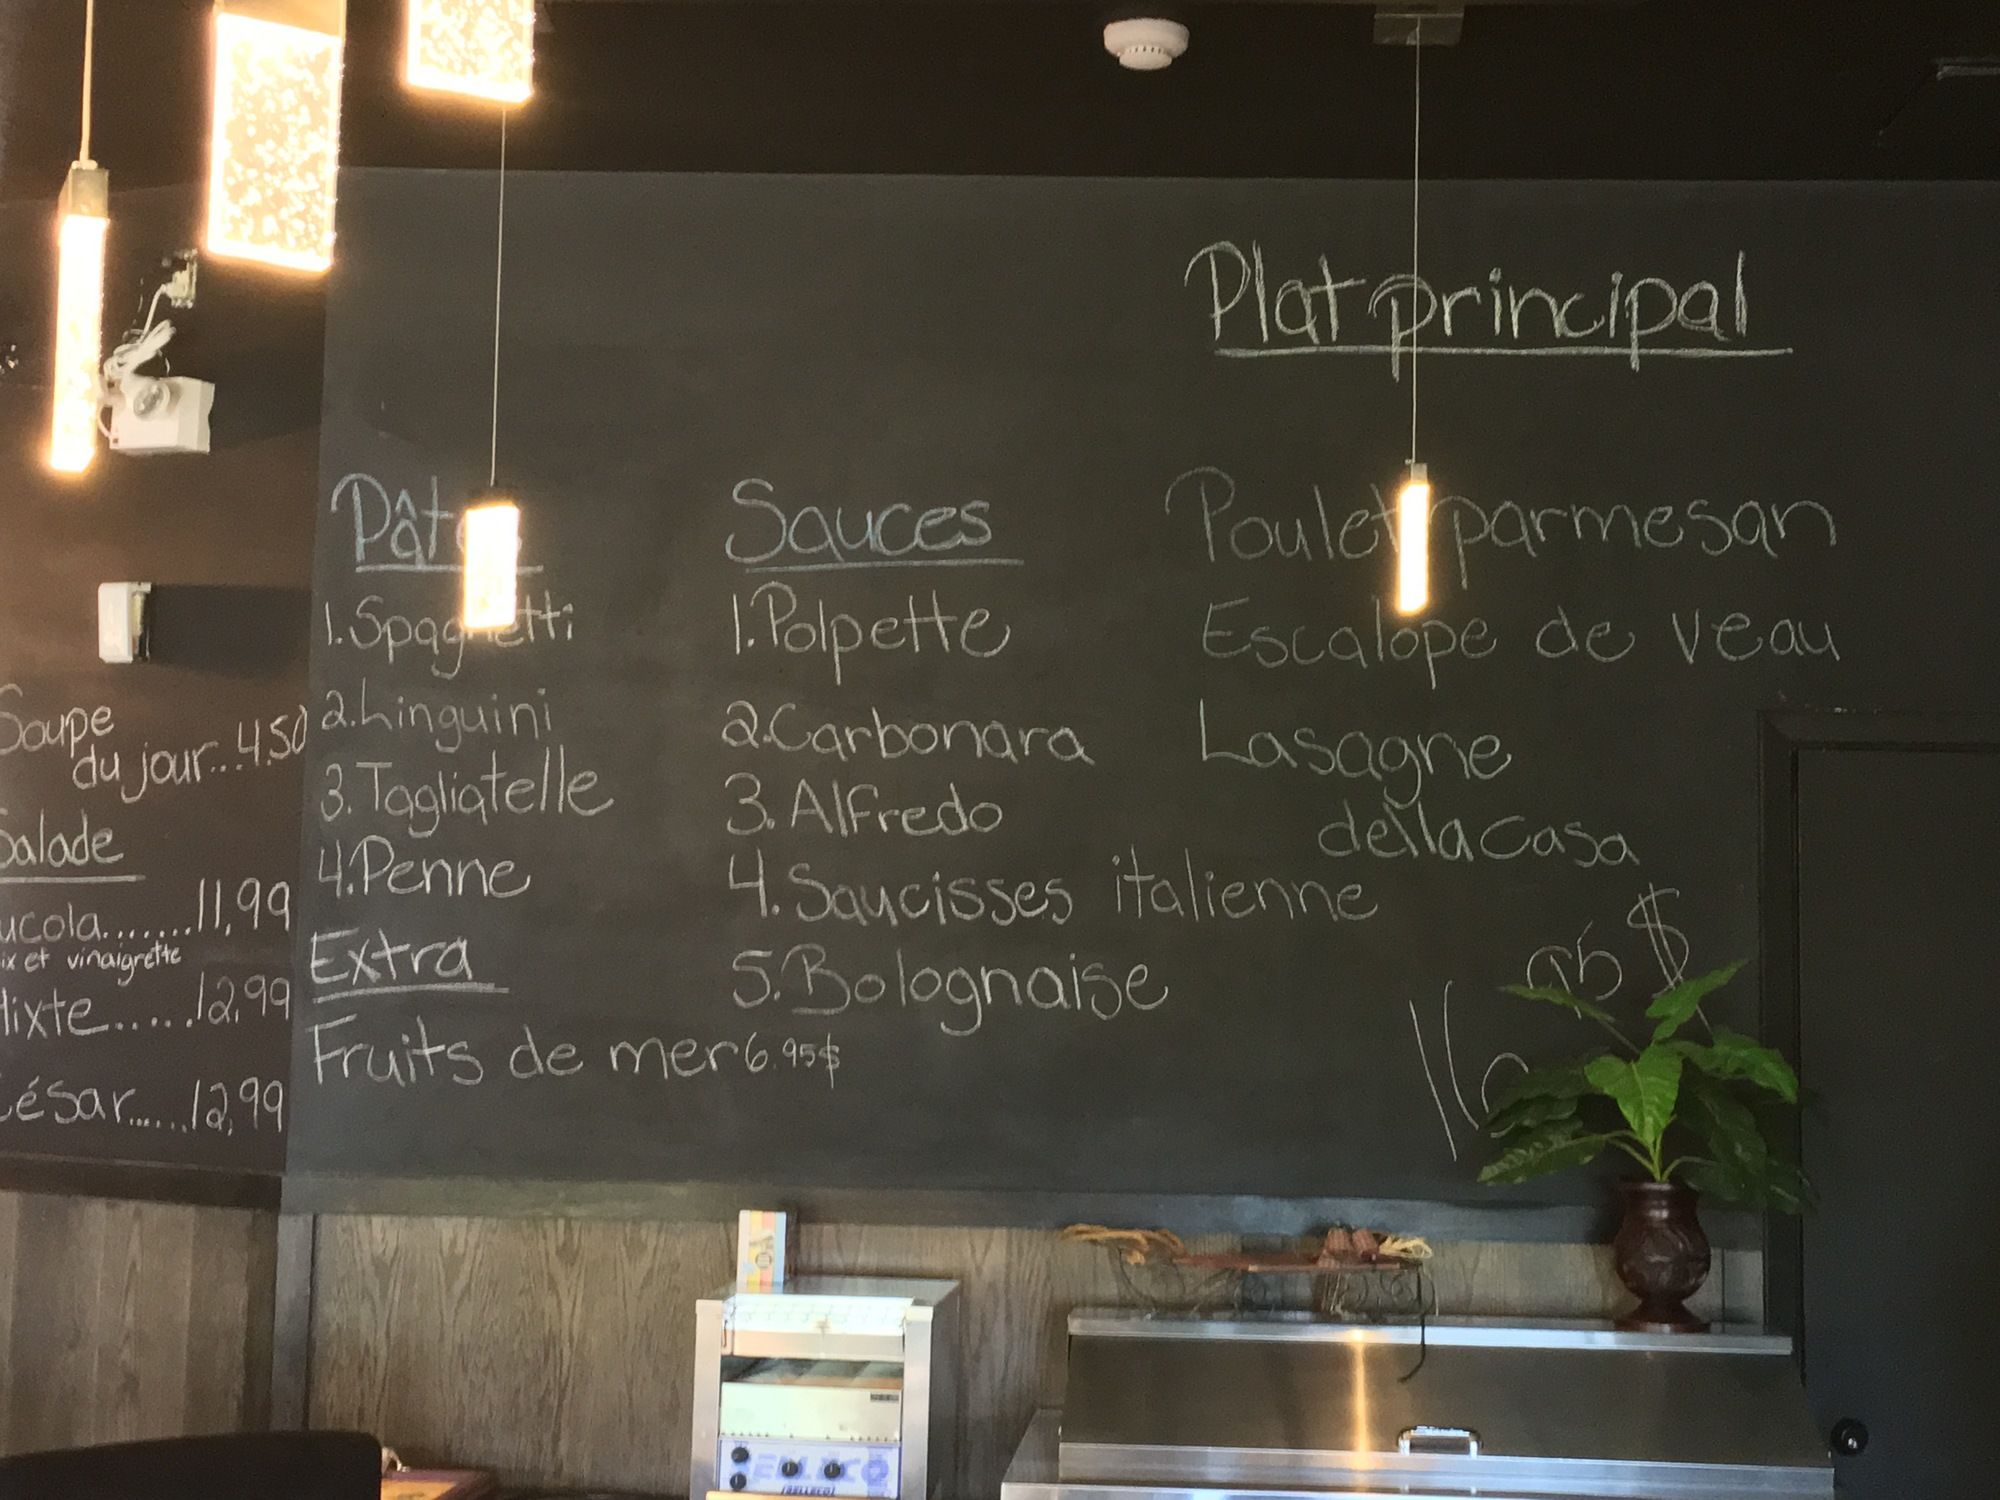 Soupe
du jour...4.50
Salade
ucola.......11,99
ix et vinaigrette
ixte.....12,99
César.....12,99
Pâtes
1.Spaghetti
2.Linguini
3.Tagliatelle
4.Penne
Extra
Fruits de mer 6.95$
Sauces
1.Polpette
2.Carbonara
3.Alfredo
4.Saucisses italienne
5.Bolognaise
Plat principal
Poulet parmesan
Escalope de veau
Lasagne
della casa
16 95 $